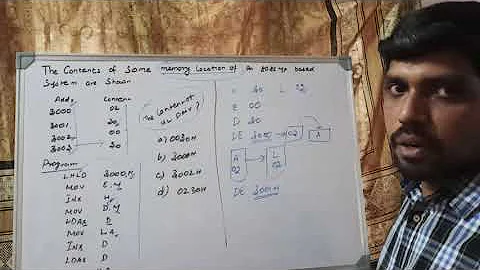 The Contents of Some memory location of an 8085 μp based
System are Shown
Addr Content
3000 02
3001 30
3002 00
3003 30
Program
LHLD 3000H
MOV E, M
INX H
MOV D, M
LDAX D
MOV L, A
INX D
LDAX D
The Content of
a) 0030H
b) 3000H
c) 3002H
d) 0230H
30 L 02
E 00
D 30
DE 3000 → 02
A
A 02 → L 02
DE 3001H